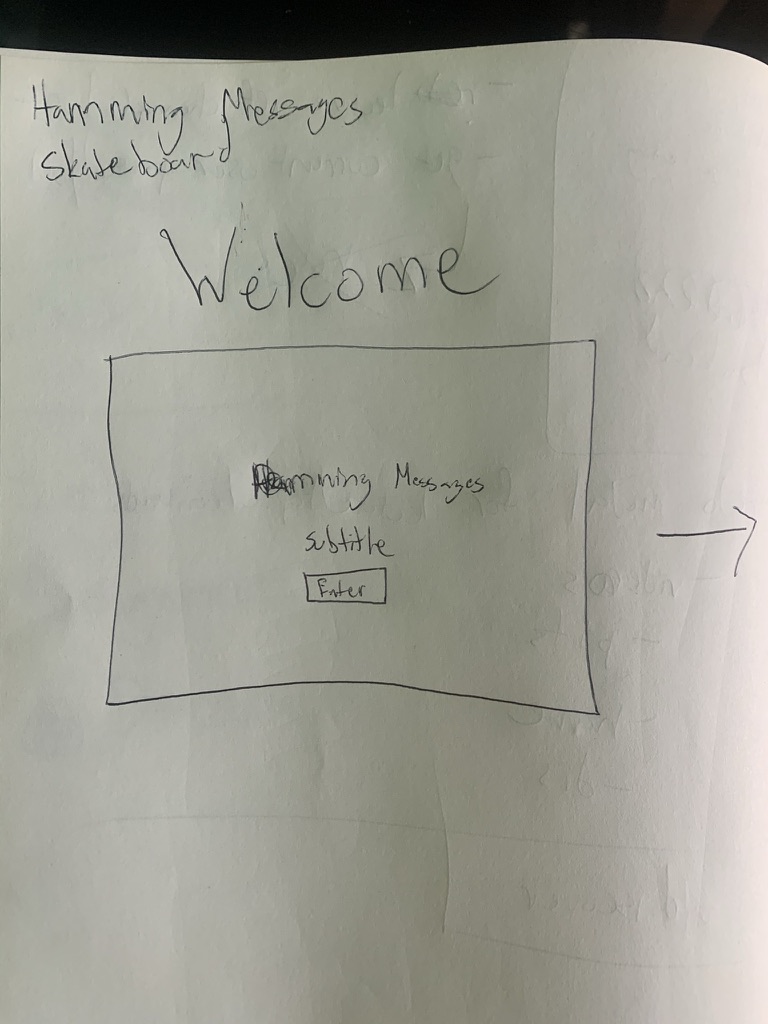 Hamming Messages
Skateboard
Welcome
Hamming Messages
subtitle
Enter